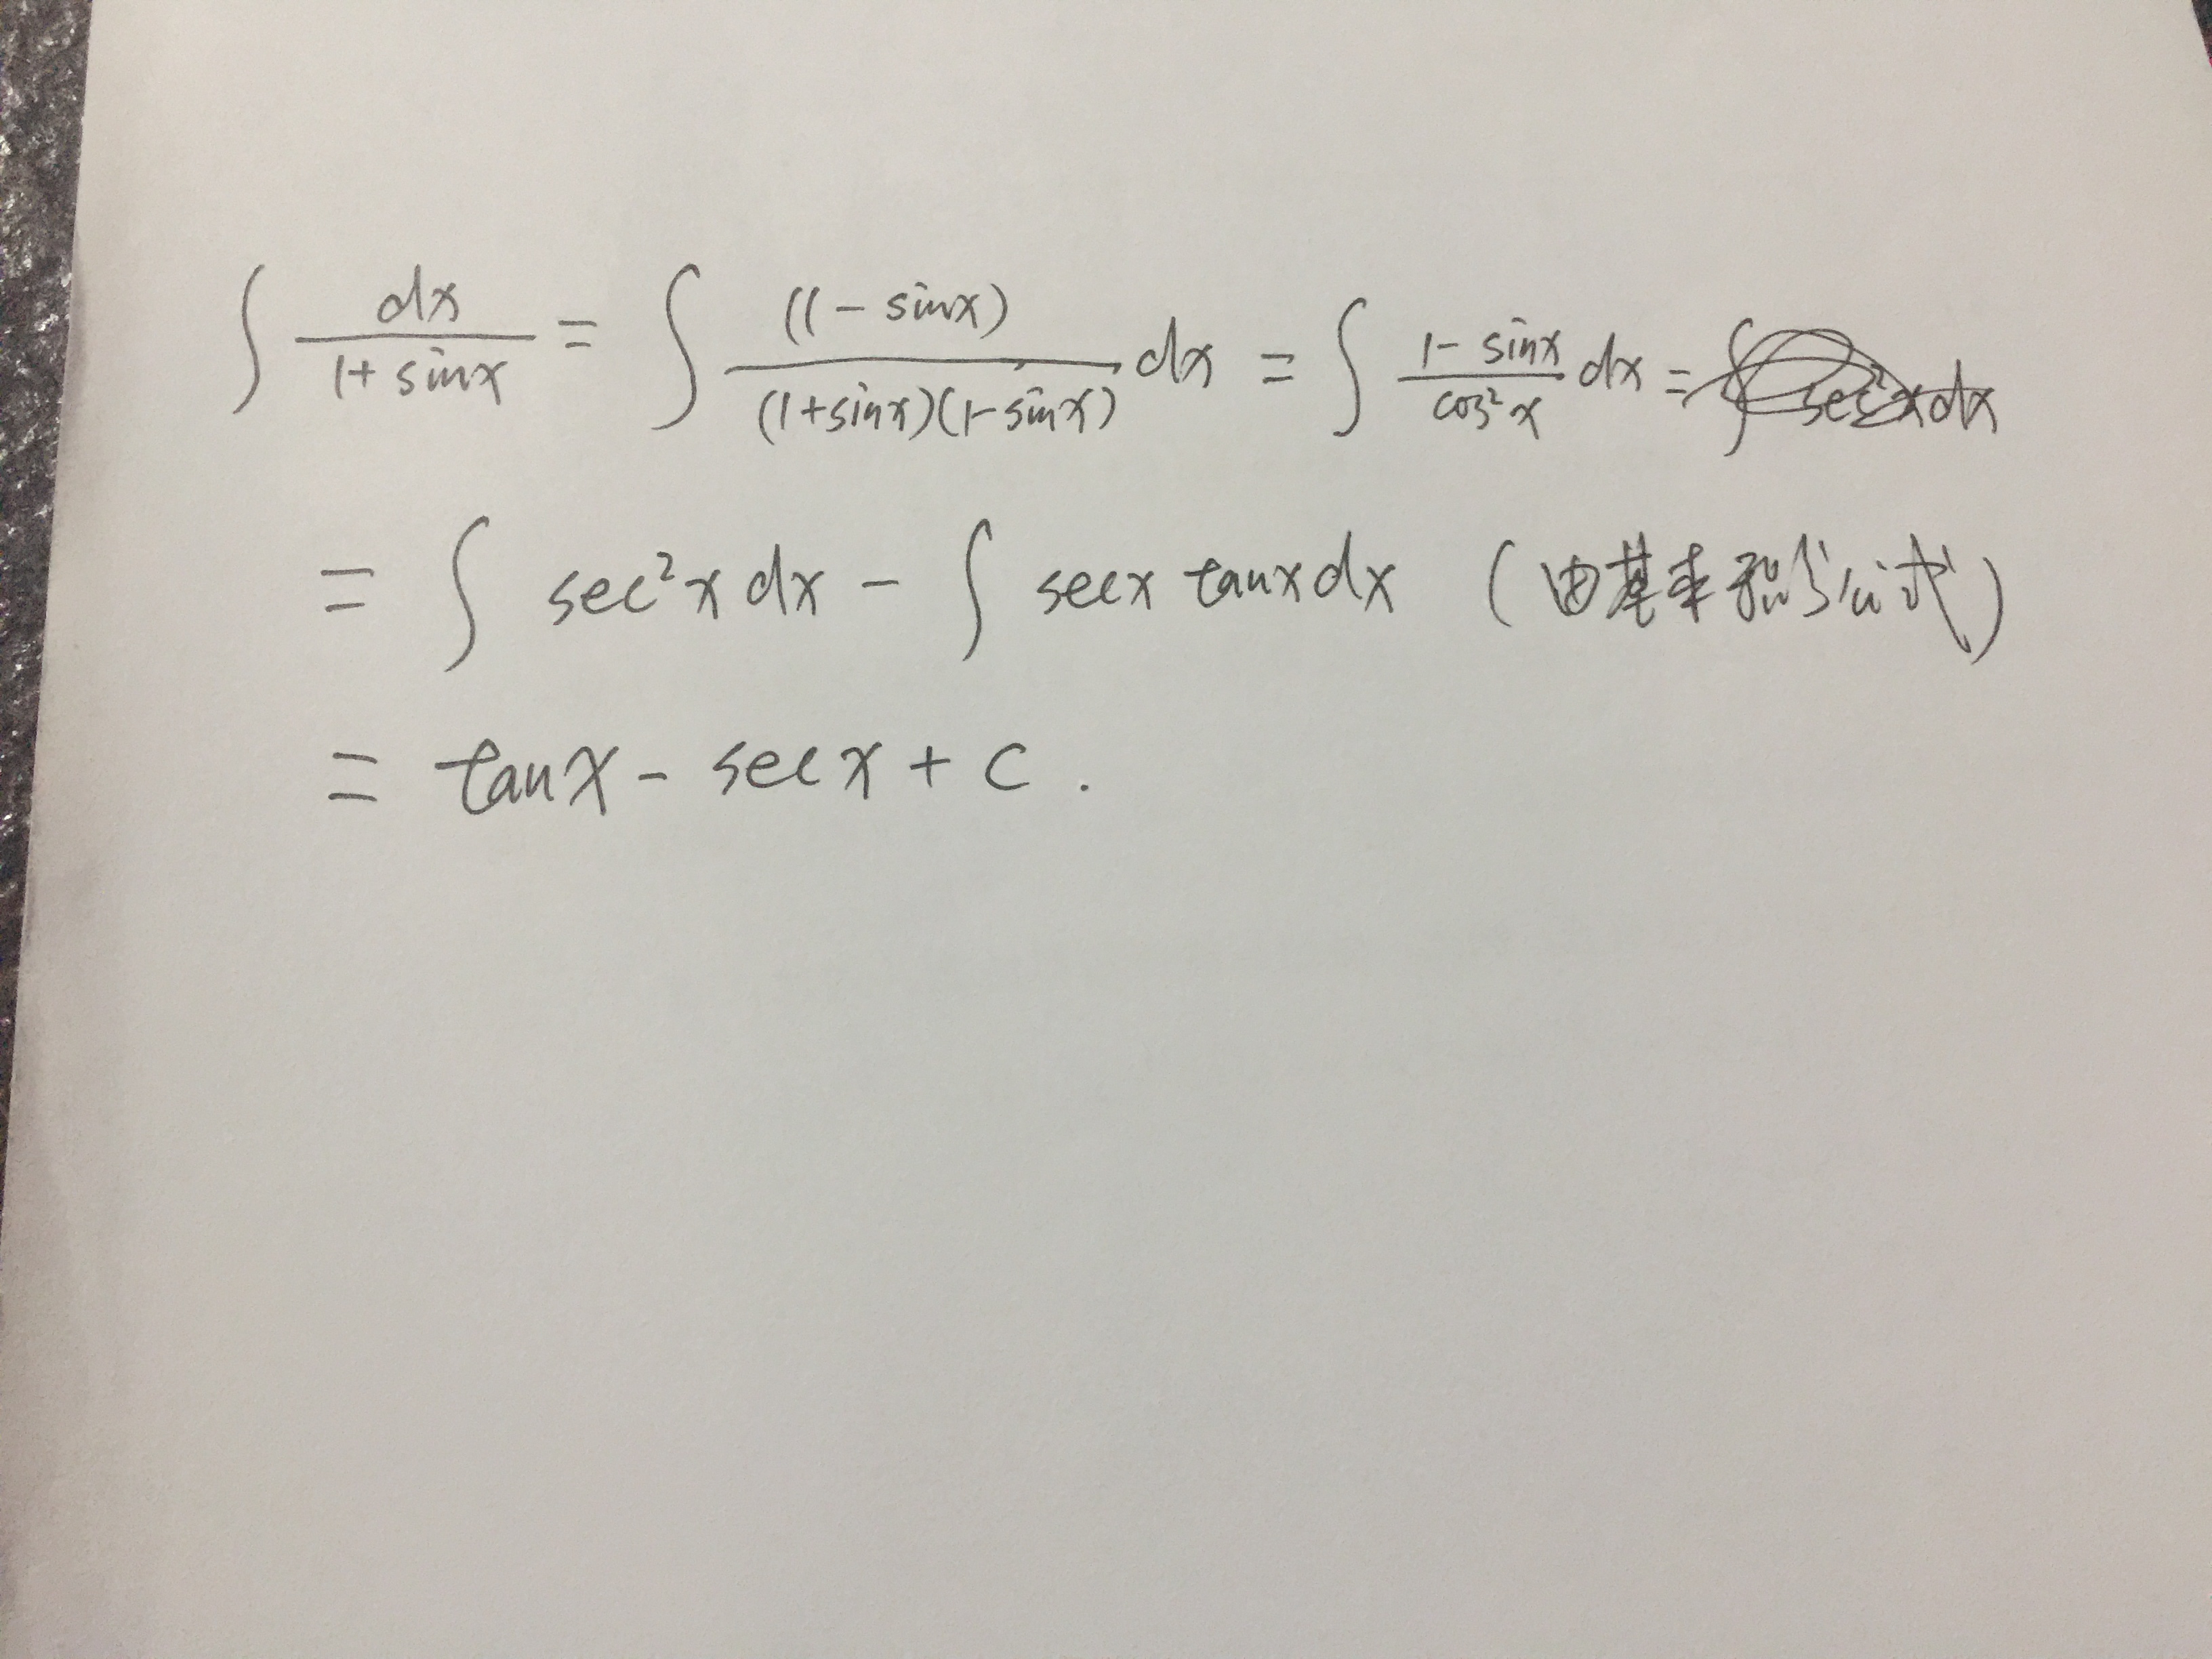 ∫ dx/(1+sinx) = ∫ (1-sinx)/((1+sinx)(1-sinx)) dx = ∫ (1-sinx)/(cos²x) dx =
= ∫ sec²x dx - ∫ secx tanx dx (由基本积分公式)
= tanx - secx + c .